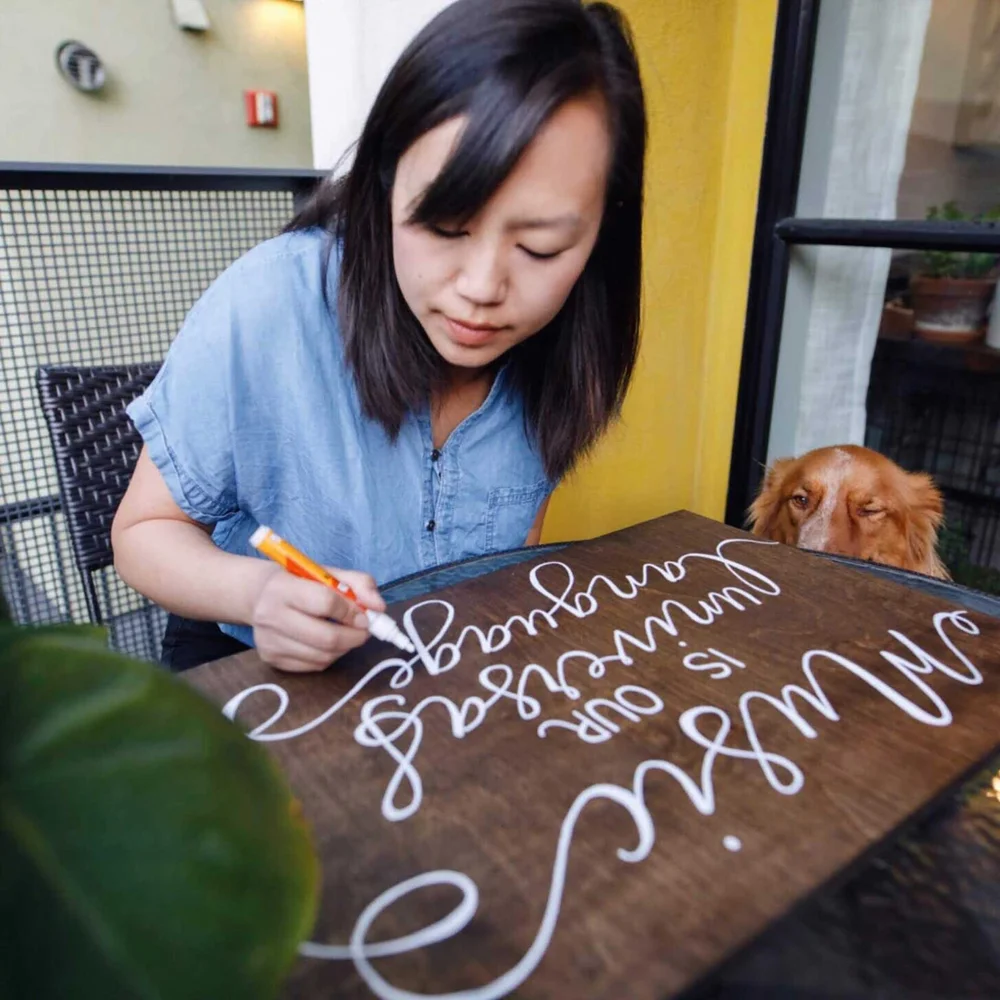 Music
IS OUR
universal
language